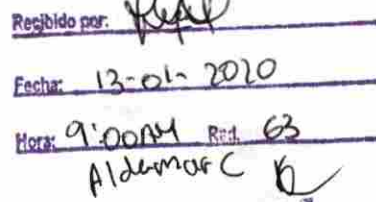 Recibido por:
Fecha: 13-01-2020
Hora: 9:00AM Rad. 63
Aldemar C